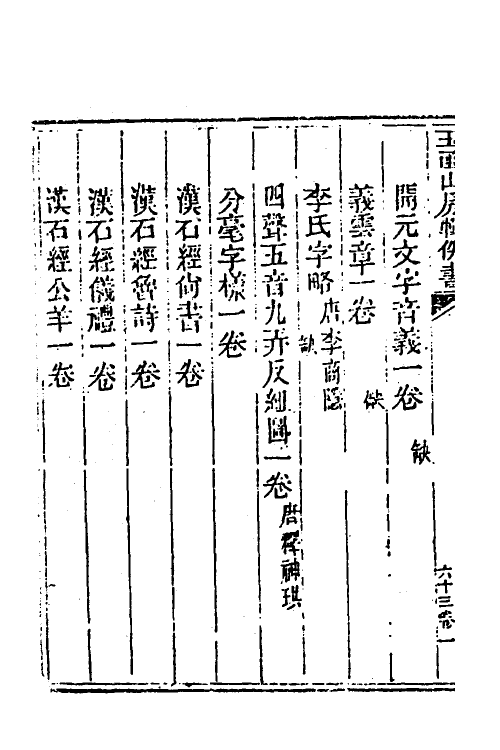 玉函山房輯佚書
六十三卷一
開元文字音義一卷 缺
義雲章一卷 缺
李氏字略 唐李商隱 缺
四聲五音九弄反紐圖一卷 唐釋神珙
分毫字樣一卷
漢石經尚書一卷
漢石經魯詩一卷
漢石經儀禮一卷
漢石經公羊一卷